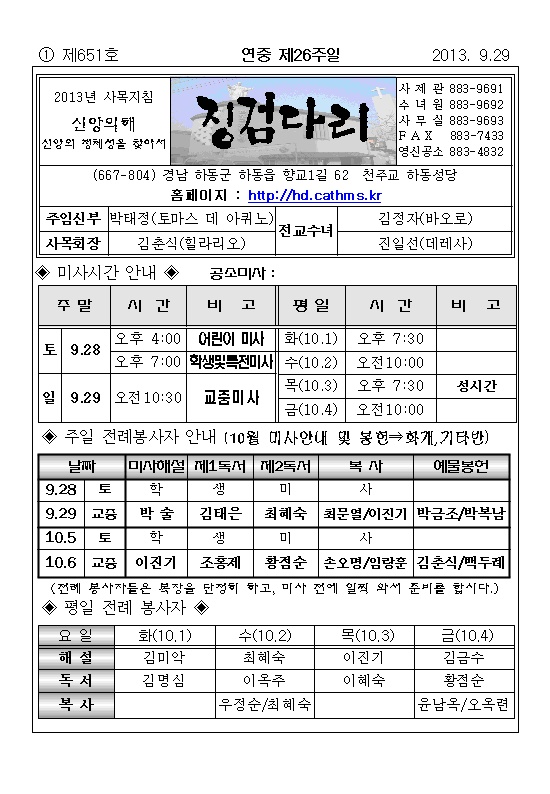 ① 제651호 연중 제26주일 2013. 9.29
2013년 사목지침
신앙의해
신앙의 정체성을 찾아서
징검다리
사 제 관 883-9691
수 녀 원 883-9692
사 무 실 883-9693
F A X 883-7433
영신공소 883-4832
(667-804) 경남 하동군 하동읍 향교1길 62 천주교 하동성당
홈페이지 : http://hd.cathms.kr
주임신부 박태정(토마스 데 아퀴노) 전교수녀 김정자(바오로)
사목회장 김춘식(힐라리오) 진일선(데레사)
◈ 미사시간 안내 ◈ 공소미사 :
주 말 시 간 비 고 평 일 시 간 비 고
토 9.28 오후 4:00 어린이 미사 화(10.1) 오후 7:30
오후 7:00 학생및특전미사 수(10.2) 오전10:00
일 9.29 오전10:30 교중미사 목(10.3) 오후 7:30 성시간
금(10.4) 오전10:00
◈ 주일 전례봉사자 안내 (10월 미사안내 및 봉헌⇒화개,기타반)
날짜 미사해설 제1독서 제2독서 복 사 예물봉헌
9.28 토 학 생 미 사
9.29 교중 박 술 김태은 최혜숙 최문열/이진기 박금조/박복남
10.5 토 학 생 미 사
10.6 교중 이진기 조홍제 황점순 손오명/임랑훈 김춘식/백두례
(전례 봉사자들은 복장을 단정히 하고, 미사 전에 일찍 와서 준비를 합시다.)
◈ 평일 전례 봉사자 ◈
요 일 화(10.1) 수(10.2) 목(10.3) 금(10.4)
해 설 김미악 최혜숙 이진기 김금수
독 서 김명심 이옥주 이혜숙 황점순
복 사 우정순/최혜숙 윤남옥/오옥련